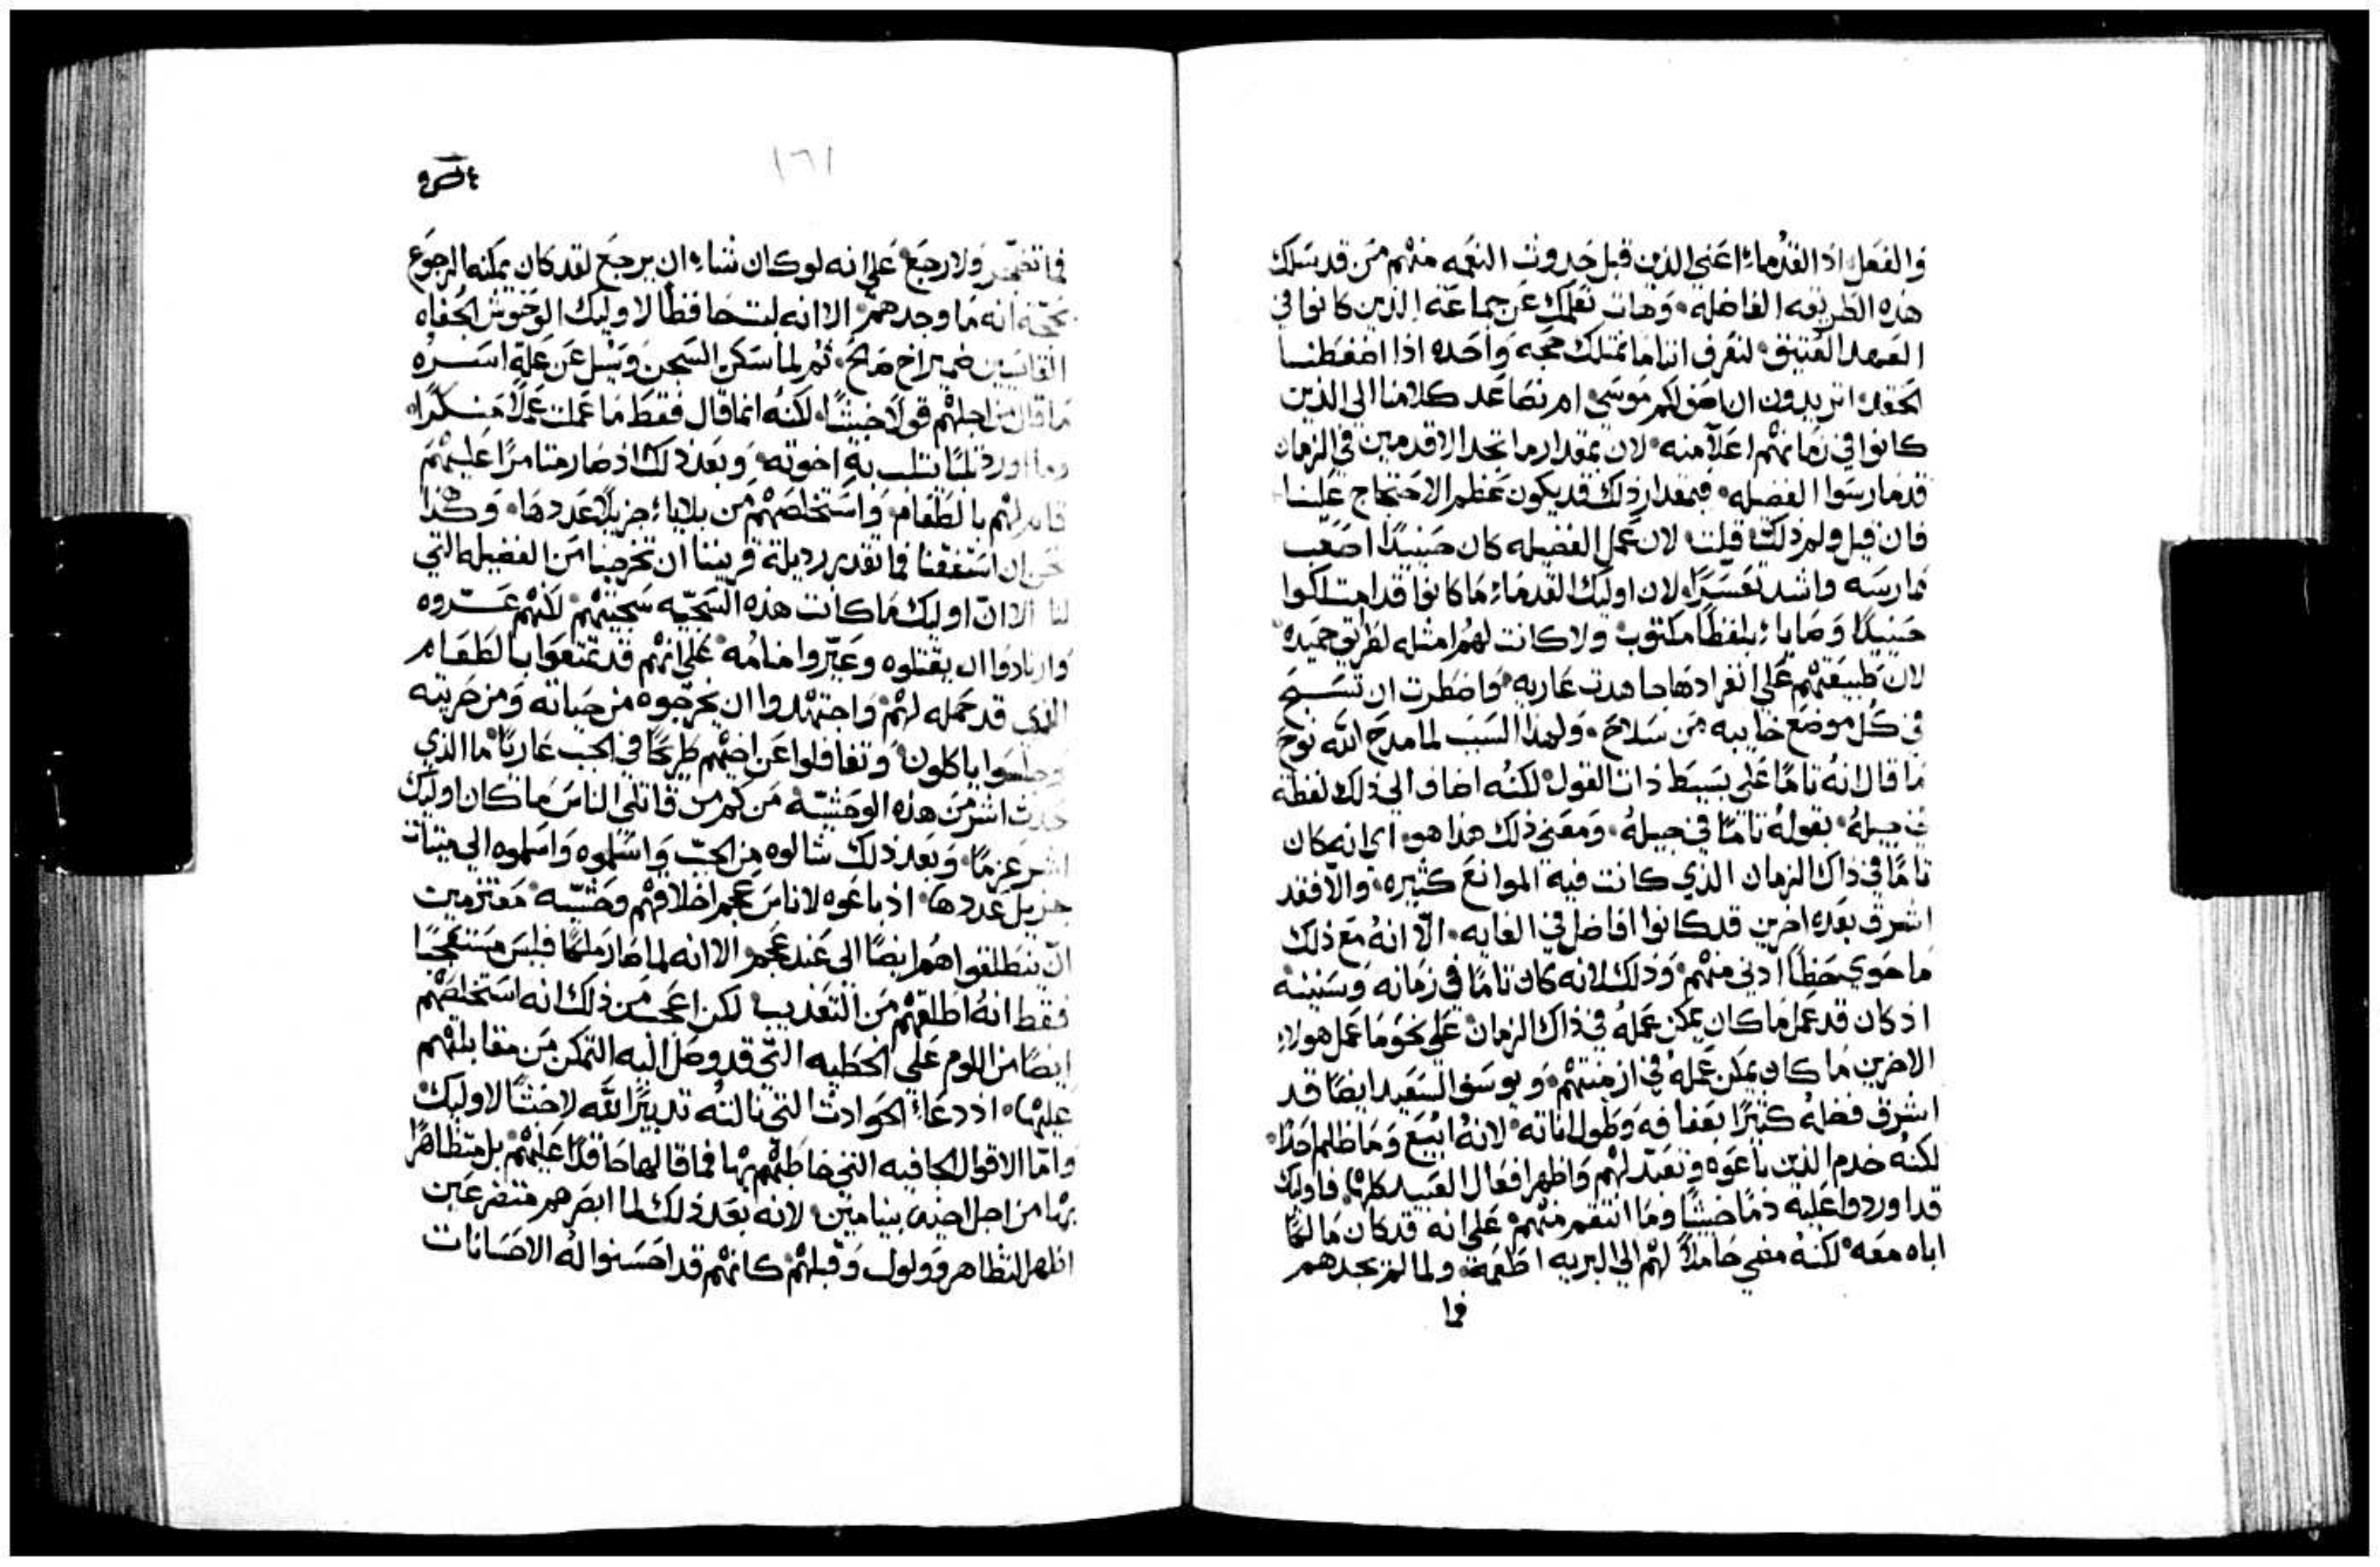 والفعل اذ القدماء اعني الذين قبل حدوث النعمه منهم من قد سلك
هذه الطريقه الفاضله وهات نعلمك عن جماعة الذين كانوا في
العهد العتيق لتعرف اننا ما نمتلك حجه واحده اذا احفظنا
الحقد اتريدون ان اضع لكم موسى ام نصاعد كلامنا الى الذين
كانوا في زمانهم اعلا منه لان بمقدار ما نجد الاقدمين في الزمان
قد مارسوا الفضله فبمقدار ذلك قد يكون عظم الاحتجاج علينا
فان قيل ولم ذلك قلت لان عمل الفضيله كان حينيذا اصعب
ممارسه واشد تعسرا ولان اوليك القدماء ما كانوا قد امتلكوا
حينيذا وصاياء بلفظا مكتوب ولا كانت لهم امثله لطريق حميده
لان طبيعتهم على انفرادها جاهدت عاريه واضطرت ان تسبح
في كل موضع خاييه من سلاح ولهذا السبب لما مدح الله نوح
ما قال انه تاما على بسيط ذات القول لكنه اضاف الى ذلك لفظة
في جيله بقوله تاما في جيله ومعنى ذلك هذا هو اي انه كان
تاما في ذاك الزمان الذي كانت فيه الموانع كثيره والا فقد
اشرق بعده اخرين قد كانوا افاضل في الغايه الا انه مع ذلك
ما حوي حظا ادنى منهم وذلك لانه كان تاما في زمانه وسنينه
اذ كان قد عمل ما كان يمكن عمله في ذاك الزمان على نحو ما عمل هولاء
الاخرين ما كان يمكن عمله في ازمنتهم ويوسف السعيد ايضا قد
اشرق فضله كثيرا بعفافه وطول اناته لانه ابيع وما ظلم احدا
لكنه خدم الذين باعوه وتعبد لهم واظهر افعال العبيد كلها فاوليك
قد اوردوا عليه ذما خبيثا وما انتقم منهم على انه قد كان مالكا
اباه معه لكنه مضي حاملا لهم الى البريه اطعمة ولما لم يجدهم
فما
١٦١
فما تضجر ولا رجع على انه لو كان شاء ان يرجع لقد كان يمكنه الرجوع
بحجة انه ما وجدهم الا انه لبث حافظا لاوليك الوحوش الجفاه
القاسيين ضمير اخ صح ثم لما سكن السجن وسئل عن علة اسره
ما قال من اجلهم قولا خبيثا لكنه انما قال فقط ما عملت عملا منكرا
وما اورد ثلبا تثلب به اخوته وبعد ذلك اذ صار متامرا عليهم
بالطعام واستخلصهم من بلاياء جزيلا عددها وهكذا
ان استفقنا فما تقدر رديلة قريبنا ان تخرجنا من الفضيله التي
لنا الا ان اوليك ما كانت هذه السجيه سجيتهم لكنهم عروه
وارادوا ان يقتلوه وعيروا منامه على انهم قد تمتعوا بالطعام
الذي قد حمله لهم واجتهدوا ان يخرجوه من حياته ومن حريته
وجلسوا ياكلون وتغافلوا عن اخيهم طريحا في الجب عاريا ما الذي
حدث اشر من هذه الوحشية من كم من قاتلي الناس ما كان اوليك
اشر عزما وبعد ذلك شالوه من الجب واسلموه واسلموه الى ميتات
جزيل عددها اذ باعوه لاناس عجم اخلاقهم وحشيه معتزمين
ان ينطلقوا هم ايضا الى عند عجم الا انه لما صار ملكا فليس مستعجبا
فقط انه اطلقهم من التعذيب لكن اعجب من ذلك انه استخلصهم
ايضا من اللوم على الخطيه التي قد وصل اليه التمكن من مقابلتهم
عليها اذ دعاء الحوادث التي نالته تدبيرا لله لا خبثا لاوليك
واما الاقوال الجافيه التي خاطبهم بها فما قالها حاقدا عليهم بل متظاهرا
بها من اجل اخيه بنيامين لانه بعد ذلك لما ابصرهم متضرعين
اظهر التظاهر وولول وقبلهم كانهم قد احسنوا له الاحسانات